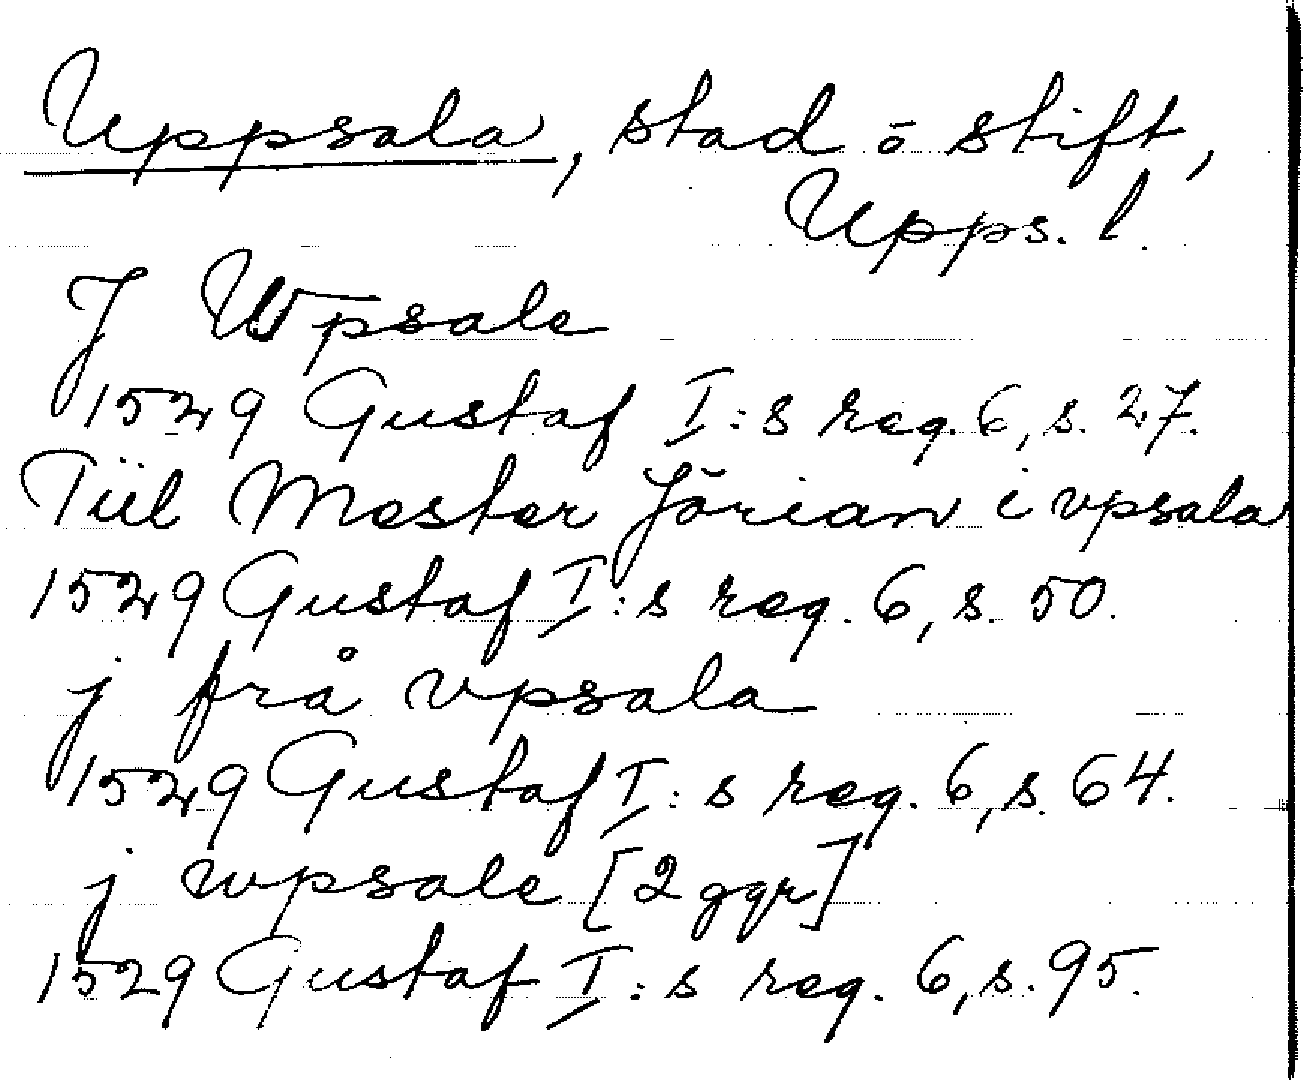 Uppsala, stad o stift,
Upps. l.
J Wpsale
1529 Gustaf I:s reg. 6, s. 27.
Tiil Mester Jörian i vpsala
1529 Gustaf I:s reg. 6, s. 50.
j frå vpsala
1529 Gustaf I:s reg. 6, s. 64.
j wpsale [2 ggr]
1529 Gustaf I:s reg. 6, s. 95.